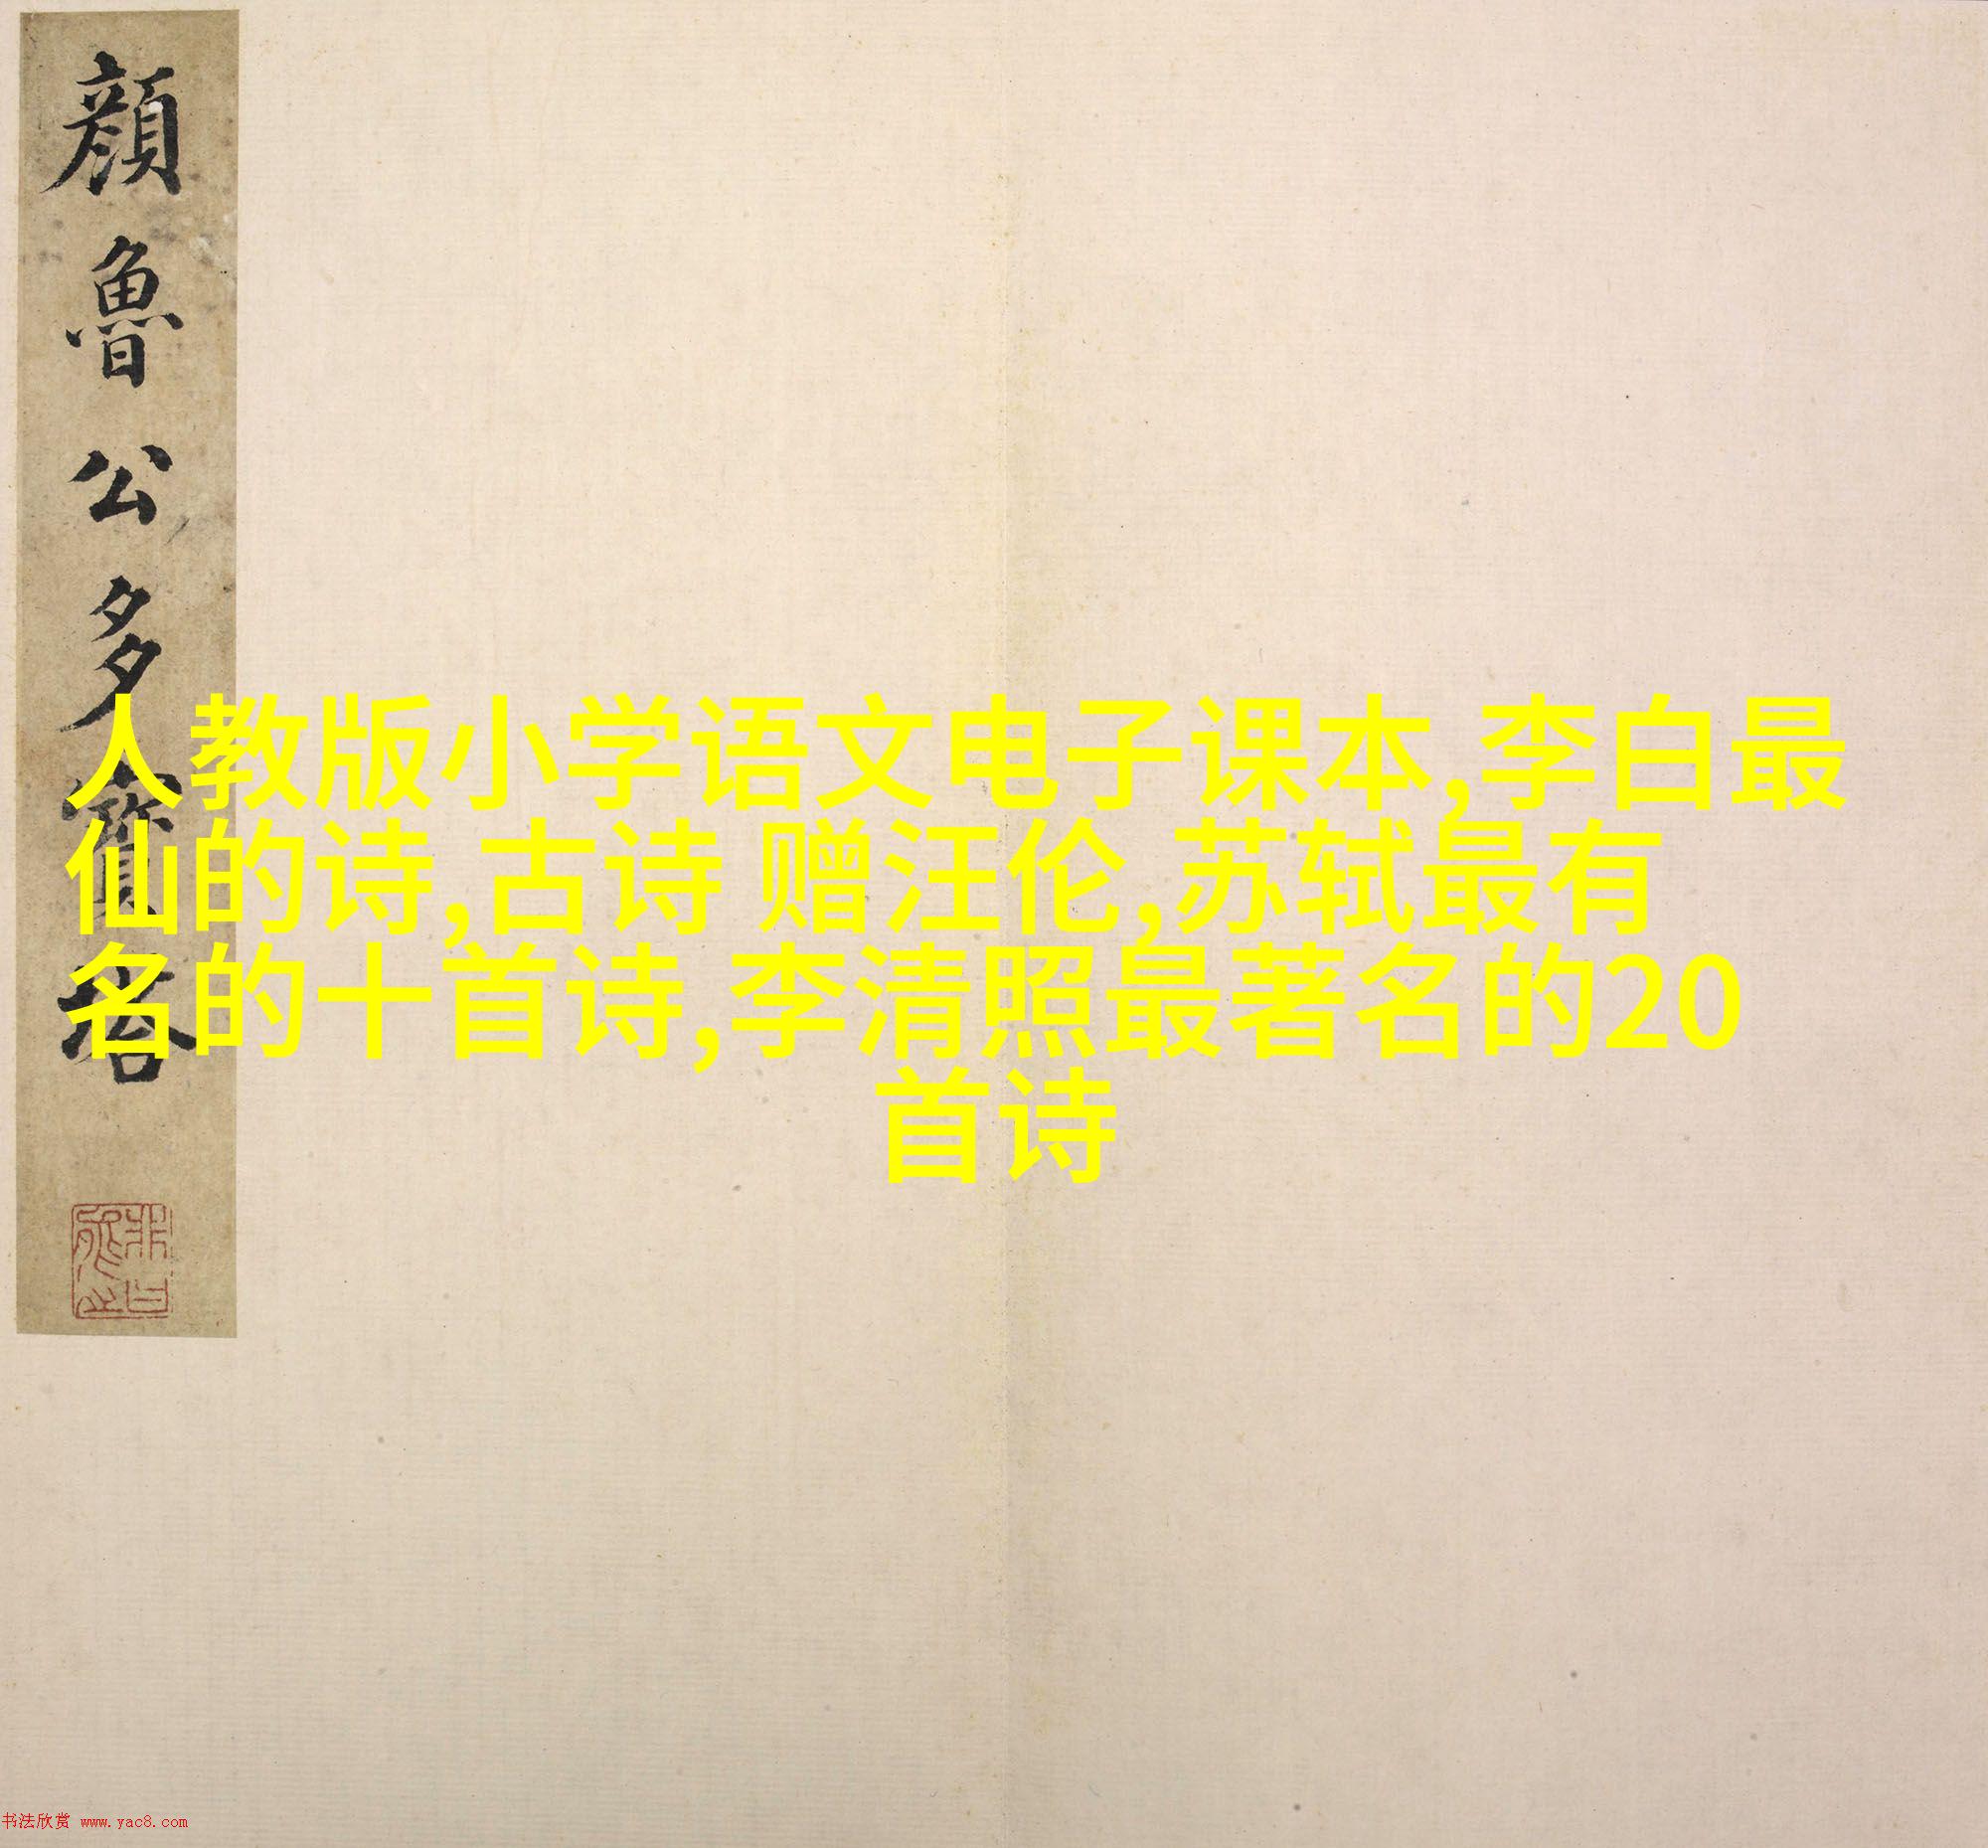 顔魯公多寶塔
人教版小学语文电子课本,李白最
仙的诗,古诗 赠汪伦,苏轼最有
名的十首诗,李清照最著名的20
首诗
书法欣赏 www.yac8.com